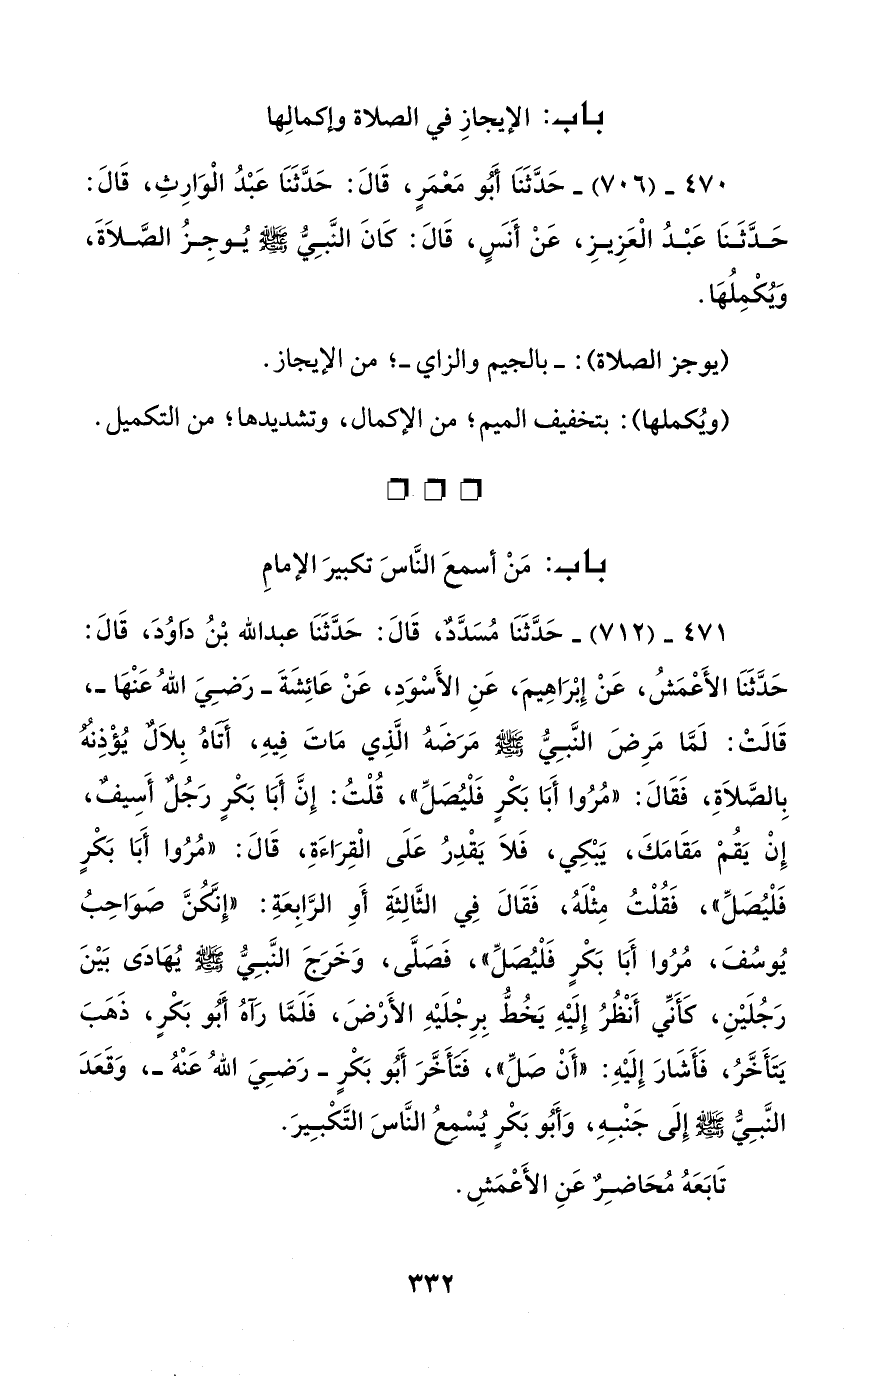 باب: الإيجازِ في الصلاة وإكمالِها
٤٧٠ ـ (٧٠٦) ـ حَدَّثَنَا أَبُو مَعْمَرٍ، قَالَ: حَدَّثَنَا عَبْدُ الْوَارِثِ، قَالَ:
حَدَّثَنَا عَبْدُ الْعَزِيزِ، عَنْ أَنَسٍ، قَالَ: كَانَ النَّبِيُّ ﷺ يُوجِزُ الصَّلاَةَ،
وَيُكْمِلُهَا.
(يوجز الصلاة): ـ بالجيم والزاي ـ؛ من الإيجاز.
(ويُكملها): بتخفيف الميم؛ من الإكمال، وتشديدها؛ من التكميل.
باب: مَنْ أسمعَ النَّاسَ تكبيرَ الإمامِ
٤٧١ ـ (٧١٢) ـ حَدَّثَنَا مُسَدَّدٌ، قَالَ: حَدَّثَنَا عبدالله بْنُ دَاوُدَ، قَالَ:
حَدَّثَنَا الأَعْمَشُ، عَنْ إِبْرَاهِيمَ، عَنِ الأَسْوَدِ، عَنْ عَائِشَةَ ـ رَضِيَ اللهُ عَنْهَا ـ،
قَالَتْ: لَمَّا مَرِضَ النَّبِيُّ ﷺ مَرَضَهُ الَّذِي مَاتَ فِيهِ، أَتَاهُ بِلاَلٌ يُؤْذِنُهُ
بِالصَّلاَةِ، فَقَالَ: «مُرُوا أَبَا بَكْرٍ فَلْيُصَلِّ»، قُلْتُ: إِنَّ أَبَا بَكْرٍ رَجُلٌ أَسِيفٌ،
إِنْ يَقُمْ مَقَامَكَ، يَبْكِي، فَلاَ يَقْدِرُ عَلَى الْقِرَاءَةِ، قَالَ: «مُرُوا أَبَا بَكْرٍ
فَلْيُصَلِّ»، فَقُلْتُ مِثْلَهُ، فَقَالَ فِي الثَّالِثَةِ أَوِ الرَّابِعَةِ: «إِنَّكُنَّ صَوَاحِبُ
يُوسُفَ، مُرُوا أَبَا بَكْرٍ فَلْيُصَلِّ»، فَصَلَّى، وَخَرَجَ النَّبِيُّ ﷺ يُهَادَى بَيْنَ
رَجُلَيْنِ، كَأَنِّي أَنْظُرُ إِلَيْهِ يَخُطُّ بِرِجْلَيْهِ الأَرْضَ، فَلَمَّا رَآهُ أَبُو بَكْرٍ، ذَهَبَ
يَتَأَخَّرُ، فَأَشَارَ إِلَيْهِ: «أَنْ صَلِّ»، فَتَأَخَّرَ أَبُو بَكْرٍ ـ رَضِيَ اللهُ عَنْهُ ـ، وَقَعَدَ
النَّبِيُّ ﷺ إِلَى جَنْبِهِ، وَأَبُو بَكْرٍ يُسْمِعُ النَّاسَ التَّكْبِيرَ.
تَابَعَهُ مُحَاضِرٌ عَنِ الأَعْمَشِ.
٣٣٢